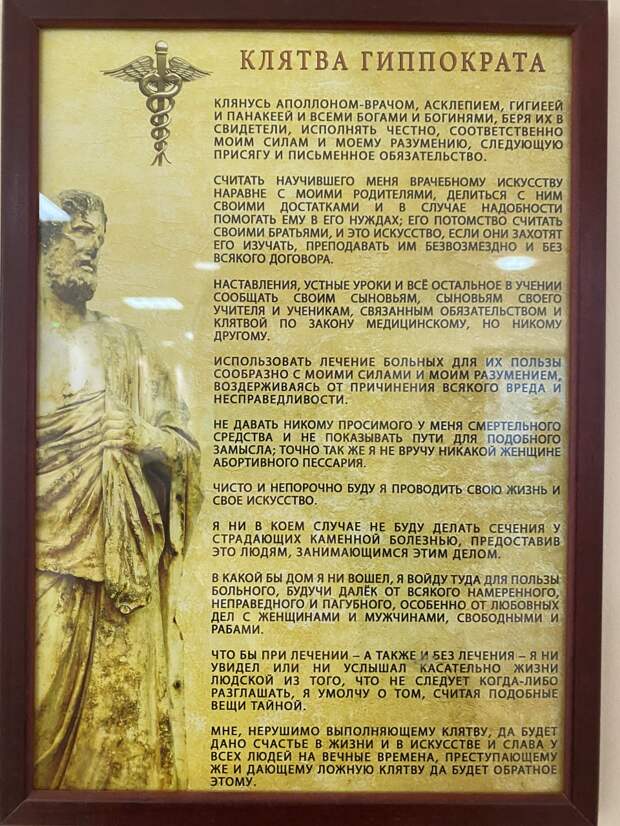 КЛЯТВА ГИППОКРАТА
КЛЯНУСЬ АПОЛЛОНОМ-ВРАЧОМ, АСКЛЕПИЕМ, ГИГИЕЕЙ
И ПАНАКЕЕЙ И ВСЕМИ БОГАМИ И БОГИНЯМИ, БЕРЯ ИХ В
СВИДЕТЕЛИ, ИСПОЛНЯТЬ ЧЕСТНО, СООТВЕТСТВЕННО
МОИМ СИЛАМ И МОЕМУ РАЗУМЕНИЮ, СЛЕДУЮЩУЮ
ПРИСЯГУ И ПИСЬМЕННОЕ ОБЯЗАТЕЛЬСТВО.
СЧИТАТЬ НАУЧИВШЕГО МЕНЯ ВРАЧЕБНОМУ ИСКУССТВУ
НАРАВНЕ С МОИМИ РОДИТЕЛЯМИ, ДЕЛИТЬСЯ С НИМ
СВОИМИ ДОСТАТКАМИ И В СЛУЧАЕ НАДОБНОСТИ
ПОМОГАТЬ ЕМУ В ЕГО НУЖДАХ; ЕГО ПОТОМСТВО СЧИТАТЬ
СВОИМИ БРАТЬЯМИ, И ЭТО ИСКУССТВО, ЕСЛИ ОНИ ЗАХОТЯТ
ЕГО ИЗУЧАТЬ, ПРЕПОДАВАТЬ ИМ БЕЗВОЗМЕЗДНО И БЕЗ
ВСЯКОГО ДОГОВОРА.
НАСТАВЛЕНИЯ, УСТНЫЕ УРОКИ И ВСЁ ОСТАЛЬНОЕ В УЧЕНИИ
СООБЩАТЬ СВОИМ СЫНОВЬЯМ, СЫНОВЬЯМ СВОЕГО
УЧИТЕЛЯ И УЧЕНИКАМ, СВЯЗАННЫМ ОБЯЗАТЕЛЬСТВОМ И
КЛЯТВОЙ ПО ЗАКОНУ МЕДИЦИНСКОМУ, НО НИКОМУ
ДРУГОМУ.
ИСПОЛЬЗОВАТЬ ЛЕЧЕНИЕ БОЛЬНЫХ ДЛЯ ИХ ПОЛЬЗЫ
СООБРАЗНО С МОИМИ СИЛАМИ И МОИМ РАЗУМЕНИЕМ,
ВОЗДЕРЖИВАЯСЬ ОТ ПРИЧИНЕНИЯ ВСЯКОГО ВРЕДА И
НЕСПРАВЕДЛИВОСТИ.
НЕ ДАВАТЬ НИКОМУ ПРОСИМОГО У МЕНЯ СМЕРТЕЛЬНОГО
СРЕДСТВА И НЕ ПОКАЗЫВАТЬ ПУТИ ДЛЯ ПОДОБНОГО
ЗАМЫСЛА; ТОЧНО ТАК ЖЕ Я НЕ ВРУЧУ НИКАКОЙ ЖЕНЩИНЕ
АБОРТИВНОГО ПЕССАРИЯ.
ЧИСТО И НЕПОРОЧНО БУДУ Я ПРОВОДИТЬ СВОЮ ЖИЗНЬ И
СВОЕ ИСКУССТВО.
Я НИ В КОЕМ СЛУЧАЕ НЕ БУДУ ДЕЛАТЬ СЕЧЕНИЯ У
СТРАДАЮЩИХ КАМЕННОЙ БОЛЕЗНЬЮ, ПРЕДОСТАВИВ
ЭТО ЛЮДЯМ, ЗАНИМАЮЩИМСЯ ЭТИМ ДЕЛОМ.
В КАКОЙ БЫ ДОМ Я НИ ВОШЕЛ, Я ВОЙДУ ТУДА ДЛЯ ПОЛЬЗЫ
БОЛЬНОГО, БУДУЧИ ДАЛЁК ОТ ВСЯКОГО НАМЕРЕННОГО,
НЕПРАВЕДНОГО И ПАГУБНОГО, ОСОБЕННО ОТ ЛЮБОВНЫХ
ДЕЛ С ЖЕНЩИНАМИ И МУЖЧИНАМИ, СВОБОДНЫМИ И
РАБАМИ.
ЧТО БЫ ПРИ ЛЕЧЕНИИ – А ТАКЖЕ И БЕЗ ЛЕЧЕНИЯ – Я НИ
УВИДЕЛ ИЛИ НИ УСЛЫШАЛ КАСАТЕЛЬНО ЖИЗНИ
ЛЮДСКОЙ ИЗ ТОГО, ЧТО НЕ СЛЕДУЕТ КОГДА-ЛИБО
РАЗГЛАШАТЬ, Я УМОЛЧУ О ТОМ, СЧИТАЯ ПОДОБНЫЕ
ВЕЩИ ТАЙНОЙ.
МНЕ, НЕРУШИМО ВЫПОЛНЯЮЩЕМУ КЛЯТВУ, ДА БУДЕТ
ДАНО СЧАСТЬЕ В ЖИЗНИ И В ИСКУССТВЕ И СЛАВА У
ВСЕХ ЛЮДЕЙ НА ВЕЧНЫЕ ВРЕМЕНА, ПРЕСТУПАЮЩЕМУ
ЖЕ И ДАЮЩЕМУ ЛОЖНУЮ КЛЯТВУ ДА БУДЕТ ОБРАТНОЕ
ЭТОМУ.